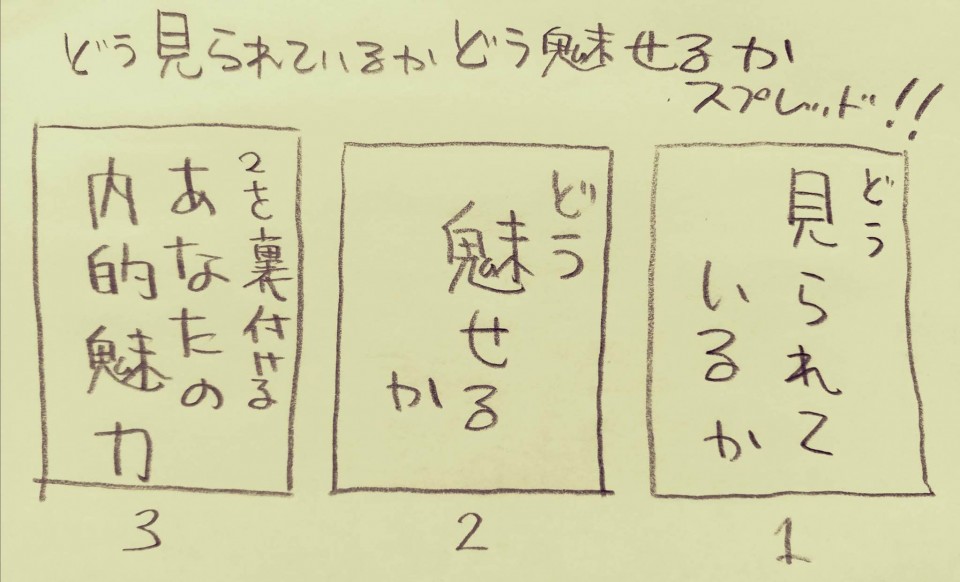 どう見られているかどう魅せるか
スプレッド!!
どう
見られて
いるか
1
どう
魅せる
か
2
2を裏付ける
あなたの
内的魅力
3